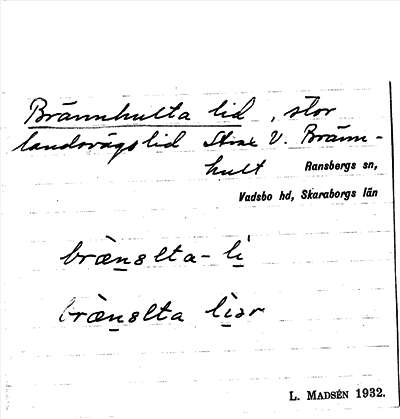 Brännhulta lid, stor
landsvägslid strax V. Bränn-
hult Ransbergs sn,
Vadsbo hd, Skaraborgs län
brànelta-li
brànelta lìar
L. MADSÉN 1932.